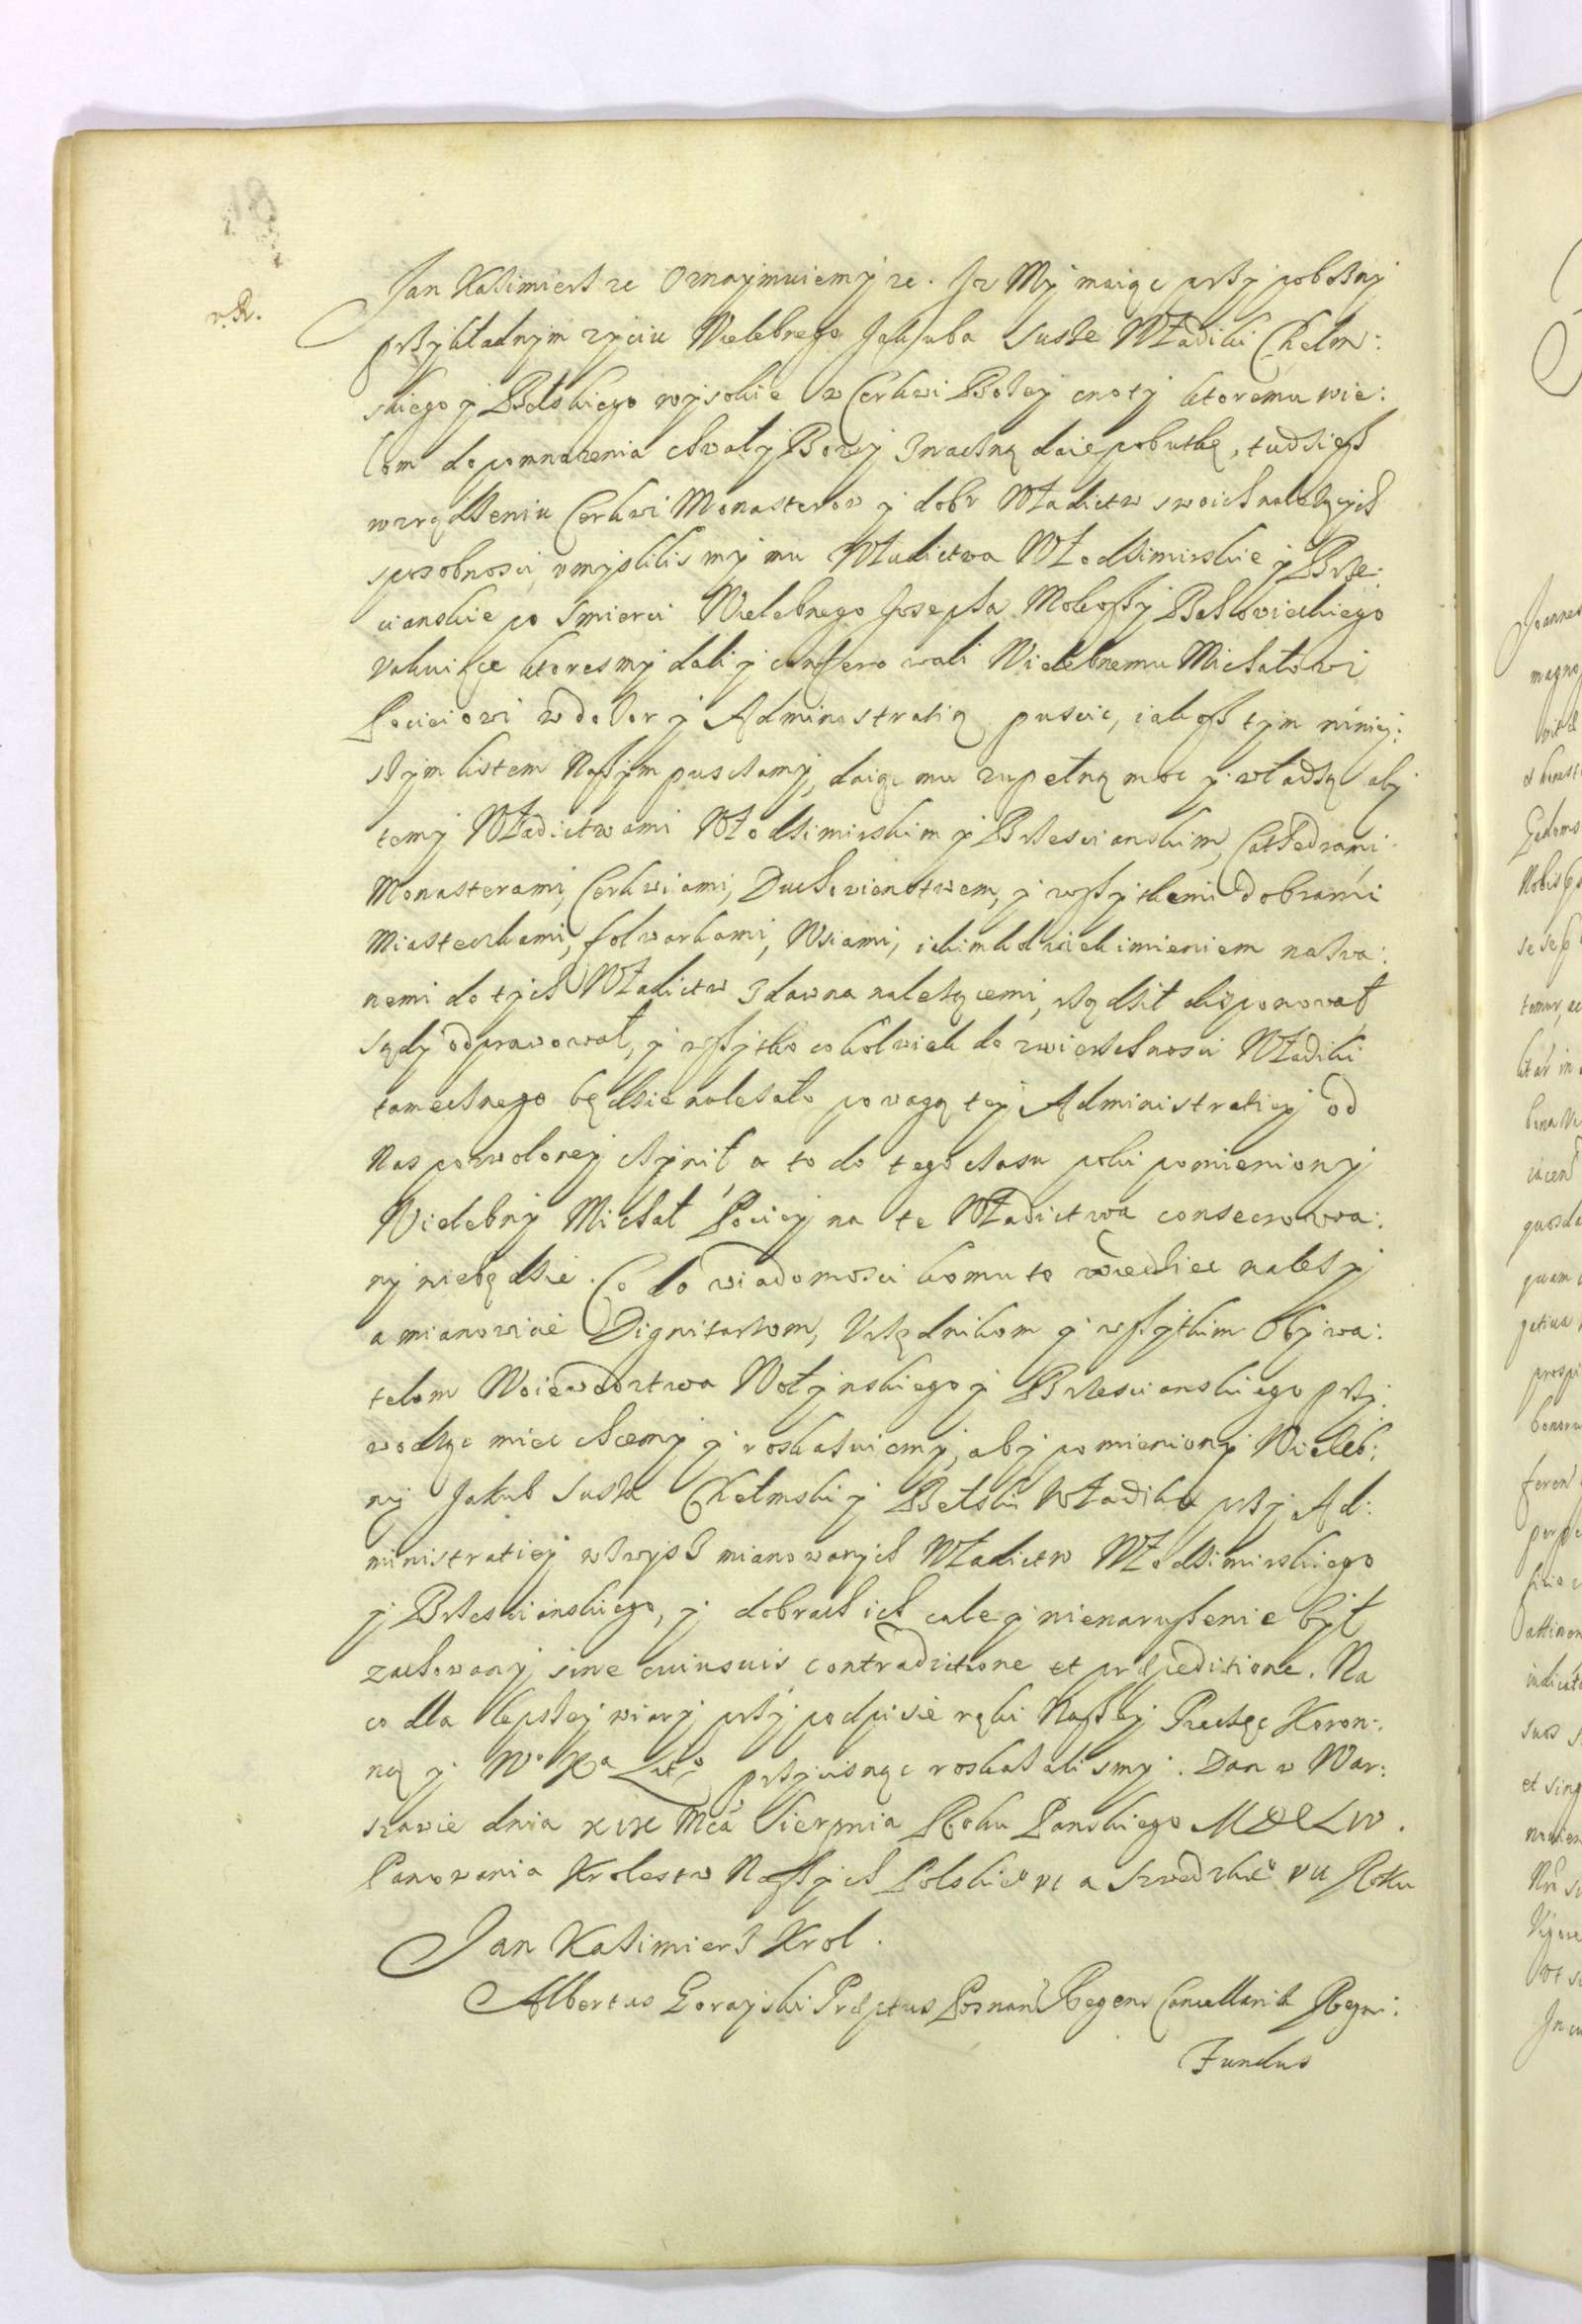 v. R.
Jan Kazimierz etc Oznaymuiemy etc. Jz My maiąc przy pobożny
przykładnym zyciu Wielebnego Jakuba Susze Władiki Chełm:
skiego y Bełskiego wysokie w Cerkwi Bożey cnoty ktoremu wie:
lom do pomnażenia chwały Bozey znaczną daie pobutkę, tudziesz
w zrądzeniu Cerkwi Monasterow y dobr Władictw swoich należących
sposobnosci, umyslilismy mu Władictwa Włodzimirskie y Brze:
scianskie po smierci Wielebnego Josepha Mokoszy Bakowieckiego
vakuiące ktoresmy dali y conferowali Wielebnemu Michałowi
Pociciowi w dozor y Administratią puscic, iakosz tym niniey:
szym listem Naszym pusczamy, daiąc mu zupełną moc y władzą aby
temy Władictwami Włodzimirskim y Brzescianskim, Cathedrami
Monasterami, Cerkwiami, Duchowienstwem, y wszytkemi dobrami
Miasteczkami, folwarkami, Wsiami, iakimkolwiek imieniem nazwa:
nemi do tych Władictw zdawna należącemi, rządził disponował
sądy odprawował, y wszytko cokolwiek do zwierzchnosci Władiki
tamecznego będzie należało powagą tey Administratiey od
Nas pozwoloney czynił, a to do tego czasu poki pomieniony
Wielebny Michał Pociey na te Władictwa consecrowa:
ny niebędzie. Co do wiadomosci komu to wiedziec należy
a mianowicie Dignitarzom, Urzędnikom y wszytkim Obywa:
telom Woiewodztwa Wołynskiego y Brzescianskiego przy:
wodząc miec chcemy y roskazuiemy, aby pomieniony Wieleb:
ny Jakub Susza Chełmski y Bełski Władika przy Ad:
ministratiey zwysz mianowanych Władictw Włodzimirskiego
y Brzescianskiego, y dobrach ich cale y nienaruszenie był
zachowany, sine cuiusvis contradictione et præpeditione. Na
co dla lepszey wiary przy podpisie ręki Naszey Pieczęc Koron:
ną y Wo Xa Lito przycisnąc roskazalismy. Dan w War:
szawie dnia XIX Mca Sierpnia Roku Panskiego MDCLIV.
Panowania Krolestw Naszych Polskieo VI a Szwedzkieo VII Roku
Jan Kazimierz Krol.
Albertus Gorayski Præptus Posnan Regens Cancellariæ Regni:
Fundus